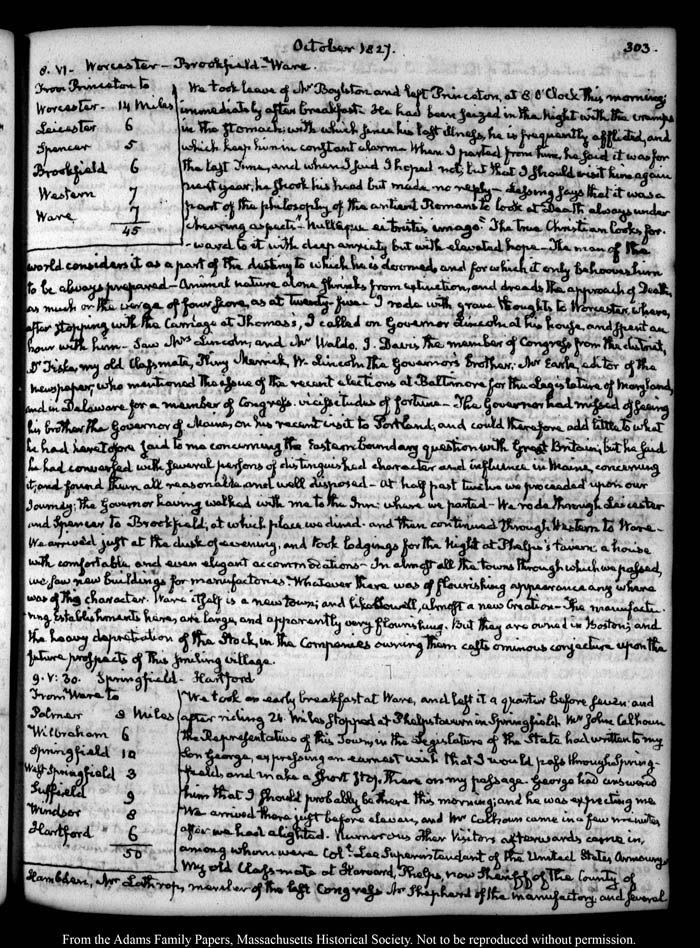 October 1827.
303.
8. VI- Worcester - Brookfield - Ware.
From Princeton to
Worcester - 14 Miles
Leicester 6
Spencer 5
Brookfield 6
Western 7
Ware 7
45
We took leave of Mr Boylston and left Princeton, at 8 O'Clock this morning;
immediately after breakfast. He had been seized in the Night with the cramp
in the Stomach; with which since his last illness, he is frequently afflicted, and
which keep him in constant alarm - When I parted from him, he said it was for
the last Time, and when I said I hoped not, but that I should visit him again
next year, he shook his head but made no reply - Lessing says that it was a
part of the philosophy of the antient Romans to look at Death always under
cheering aspects - "Nullaque et tristis imago." The true Christian looks for-
-ward to it with deep anxiety but with elevated hope - The man of the
world considers it as a part of the destiny to which he is doomed, and for which it only behooves him
to be always prepared - Animal nature alone shrinks from extinction, and dreads the approach of Death,
as much on the verge of four score, as at twenty-five - I rode with grave thoughts to Worcester, where,
after stopping with the Carriage at Thomas's, I called on Governor Lincoln at his house, and spent an
hour with him - Saw Mrs Lincoln, and Mr Waldo, J. Davis the member of Congress from the district,
Dr Fiske, my old Classmate, Pliny Merrick, W. Lincoln the Governor's brother; Mr Earle, editor of the
newspaper, who mentioned the issue of the recent elections at Baltimore for the Legislature of Maryland,
and in Delaware for a member of Congress. vicissitudes of fortune - The Governor had missed of seeing
his brother the Governor of Maine, on his recent visit to Portland, and could therefore add little to what
he had heretofore said to me concerning the Eastern boundary question with Great Britain; but he said
he had conversed with several persons of distinguished character and influence in Maine, concerning
it; and found them all reasonable and well disposed - At half past twelve we proceeded upon our
Journey; the Governor having walked with me to the Inn; where we parted - We rode through Leicester
and Spencer to Brookfield, at which place we dined - and then continued through Western to Ware -
We arrived just at the dusk of evening; and took lodgings for the Night at Phelps's tavern a house
with comfortable and even elegant accommodations - In almost all the towns through which we passed,
we saw new buildings for manufactories - Whatever there was of flourishing appearance any where
was of this character. Ware itself is a new town; and like Lowell, almost a new Creation - The manufactu-
-ring Establishments here, are large, and apparently very flourishing. But they are owned in Boston; and
the heavy depreciation of the Stock, in the Companies owning them casts ominous conjecture upon the
future prospects of this smiling village.
9. V: 30. Springfield - Hartford
From Ware to
Palmer 8 Miles
Wilbraham 6
Springfield 10
West Springfield 3
Suffield 9
Windsor 8
Hartford 6
50
We took an early breakfast at Ware, and left it a quarter before seven: and
after riding 24 Miles stopped at Phelps tavern in Springfield. Mr John Calhoun
the Representative of this Town, in the Legislature of the State had written to my
Son George, expressing an earnest wish that I would pass through Spring-
-field, and make a short stop there on my passage. George had answered
him that I should probably be there this morning; and he was expecting me
We arrived there just before eleven, and Mr Calhoun came in a few minutes
after we had alighted. Numerous other Visitors afterwards came in,
among whom were Colt. Lee Superintendant of the United States Armoury,
My old Classmate at Harvard, Phelps, now Sheriff of the County of
Hambden, Mr Lathrop, member of the last Congress Mr Shepherd of the manufactory, and several
From the Adams Family Papers, Massachusetts Historical Society. Not to be reproduced without permission.